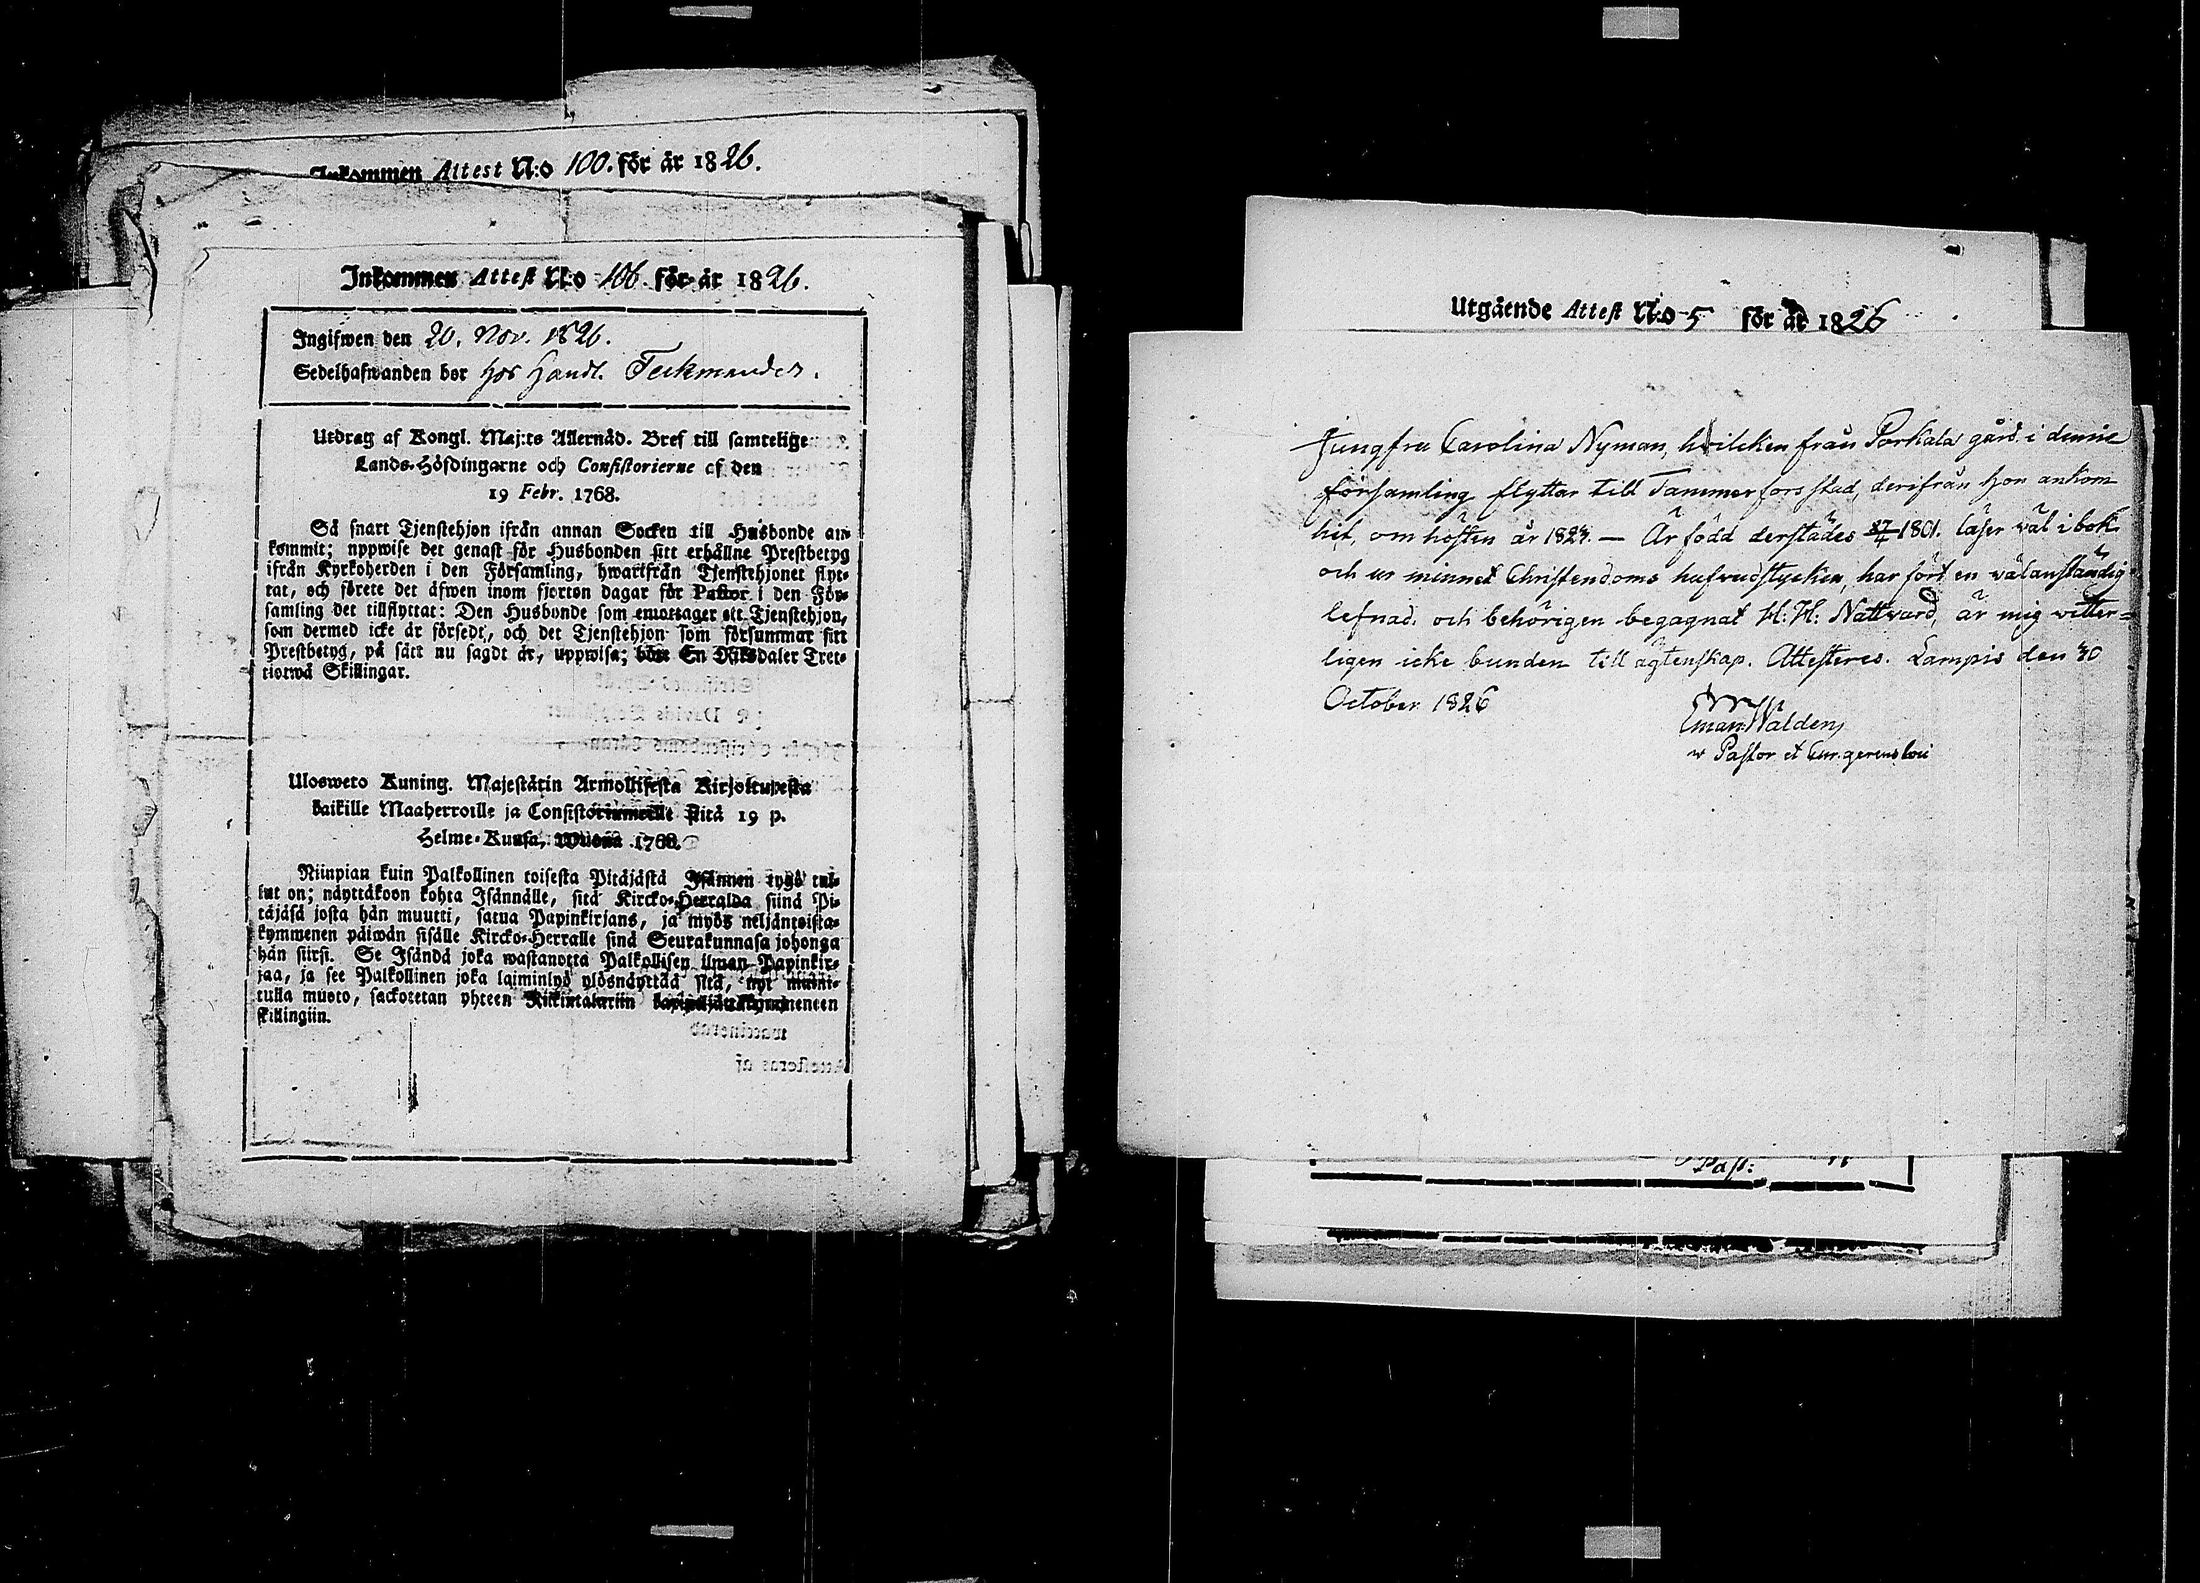 Inkommen Attest N:o 100. för år 1826.
Inkommen Attest N:o 106. för år 1826.
Ingifwen den 20. Nov. 1826.
Sedelhafwanden bor hos Handl.
Utdrag af Kongl. Maj:ts Allernåd. Bref till samtelige
Lands-Höfdingarne och Consistorierne af den
19 Febr. 1768.
Så snart Tjenstehjon ifrån annan Socken till Husbonde an-
kommit; uppwise det genast för Husbonden sitt erhållne Prestbetyg
ifrån Kyrkoherden i den Församling, hwartfrån Tjenstehjonet flyt-
tat, och förete det äfwen inom fjorton dagar för Pastor i den För-
samling det tillflyttat: Den Husbonde som emottager ett Tjenstehjon,
som dermed icke är försedt, och det Tjenstehjon som försummar sitt
Prestbetyg, på sätt nu sagdt är, uppwisa; böte En Riksdaler Tret-
tiotwå Skillingar.
Ulosweto Kuning. Majestätin Armollisesta Kirjoituxesta
kaikille Maaherroille ja Consistoriumeille siitä 19 p.
Helme-Kuusa, Wuonna 1768.
Niinpian kuin Palkollinen toisesta Pitäjästä Isännen tygö tul-
lut on; näyttäköön kohta Isännälle, sitä Kircko-Herralda siinä Pi-
täjäsä josta hän muutti, saatua Papinkirjans, ja myös neljäntoista-
kymmenen päiwän sisälle Kircko-Herralle siinä Seurakunnasa johonga
hän siirsi. Se Isändä joka wastanotta Palkollisen ilman Papinkir-
jaa, ja see Palkollinen joka laiminlyö ylösnäyttää sitä, nyt maini-
tulla muoto, sackotetan yhteen Rikintaleriin
skillingiin.
Utgående Attest N:o 5 för år 1826
Jungfru Carolina Nyman, hvilcken från Porkala gård i denne
församling flyttar till Tammerfors stad, derifrån hon ankom
hit, om hösten år 1824. — Är född derstädes 27/4 1801. läser väl i bok
och ur minnet Christendoms hufvudstycken, har fört en välanständig
lefnad. och behörigen begagnat H: H: Nattvard, är mig vetter-
ligen icke bunden till ägtenskap. Attesteres. Lampis den 30
October 1826
Eman: Walden,
v Pastor et Cur. gerens loci
Past: